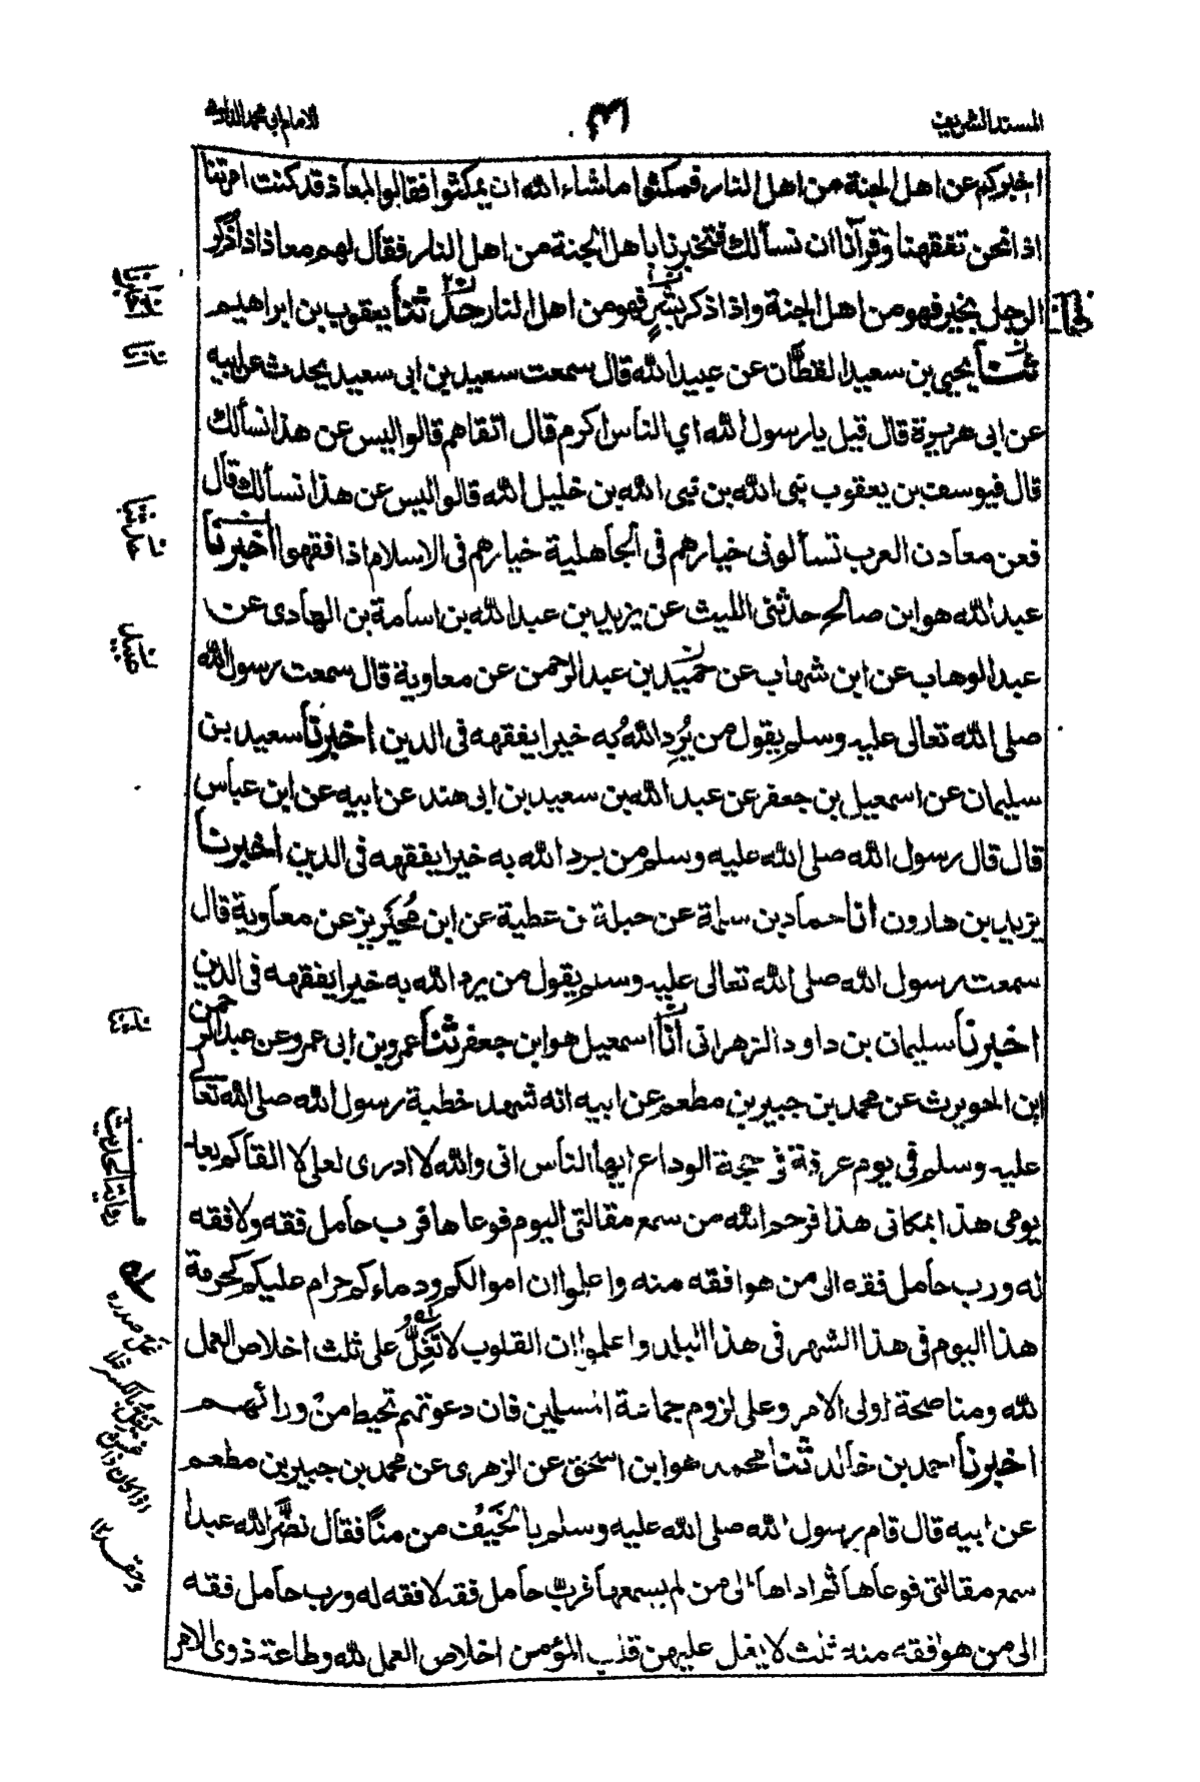 المسند الشريف
للامام ابى محمد الدارمى
اخبركم عن اهل الجنة من اهل النار فمكثوا ماشاء الله ان يمكثوا فقالوا لمعاذ قد كنت امرتنا
اذا نحن تفقهنا وقرأنا ان نسألك فتخبرنا باهل الجنة من اهل النار فقال لهم معاذ اذا ذكر
الرجل بخير فهو من اهل الجنة واذا ذكر بشر فهو من اهل النار ثنا يعقوب بن ابراهيم
ثنا يحيى بن سعيد القطان عن عبيد الله قال سمعت سعيد بن ابى سعيد يحدث عن ابيه
عن ابى هريرة قال قيل يا رسول الله اي الناس اكرم قال اتقاهم قالوا ليس عن هذا نسألك
قال فيوسف بن يعقوب نبى الله بن نبى الله بن خليل الله قالوا ليس عن هذا نسألك قال
فعن معادن العرب تسألونى خيارهم فى الجاهلية خيارهم فى الاسلام اذا فقهوا اخبرنا
عبد الله هو ابن صالح حدثنى الليث عن يزيد بن عبد الله بن اسامة بن الهادى عن
عبد الوهاب عن ابن شهاب عن حميد بن عبد الرحمن عن معاوية قال سمعت رسول الله
صلى الله تعالى عليه وسلم يقول من يُرِدِ اللهُ به خيرا يفقهه فى الدين اخبرنا سعيد بن
سليمان عن اسمعيل بن جعفر عن عبد الله بن سعيد بن ابى هند عن ابيه عن ابن عباس
قال قال رسول الله صلى الله عليه وسلم من يرد الله به خيرا يفقهه فى الدين اخبرنا
يزيد بن هارون انا حماد بن سلمة عن جبلة بن عطية عن ابن مُحَيريز عن معاوية قال
سمعت رسول الله صلى الله تعالى عليه وسلم يقول من يرد الله به خيرا يفقهه فى الدين
اخبرنا سليمان بن داود الزهرانى انا اسمعيل هو ابن جعفر ثنا عمرو بن ابى عمرو عن عبد الرحمن
ابن الحويرث عن محمد بن جبير بن مطعم عن ابيه انه شهد خطبة رسول الله صلى الله تعالى
عليه وسلم فى يوم عرفة فى حجة الوداع ايها الناس انى والله لا ادرى لعلى لا القاكم بعد
يومى هذا بمكانى هذا فرحم الله من سمع مقالتى اليوم فوعاها فرب حامل فقه ولا فقه
له ورب حامل فقه الى من هو افقه منه واعلموا ان اموالكم ودماءكم حرام عليكم كحرمة
هذا اليوم فى هذا الشهر فى هذا البلد واعلموا ان القلوب لا تَغِلُّ على ثلث اخلاص العمل
لله ومناصحة اولى الامر وعلى لزوم جماعة المسلمين فان دعوتهم تحيط من ورائهم
اخبرنا احمد بن خالد ثنا محمد هو ابن اسحق عن الزهرى عن محمد بن جبير بن مطعم
عن ابيه قال قام رسول الله صلى الله عليه وسلم بالخَيْف من منًا فقال نضَّر الله عبدا
سمع مقالتى فوعاها ثم اداها الى من لم يسمعها فرب حامل فقه لا فقه له ورب حامل فقه
الى من هو افقه منه ثلث لا يغل عليهن قلب المؤمن اخلاص العمل لله وطاعة ذوى الامر